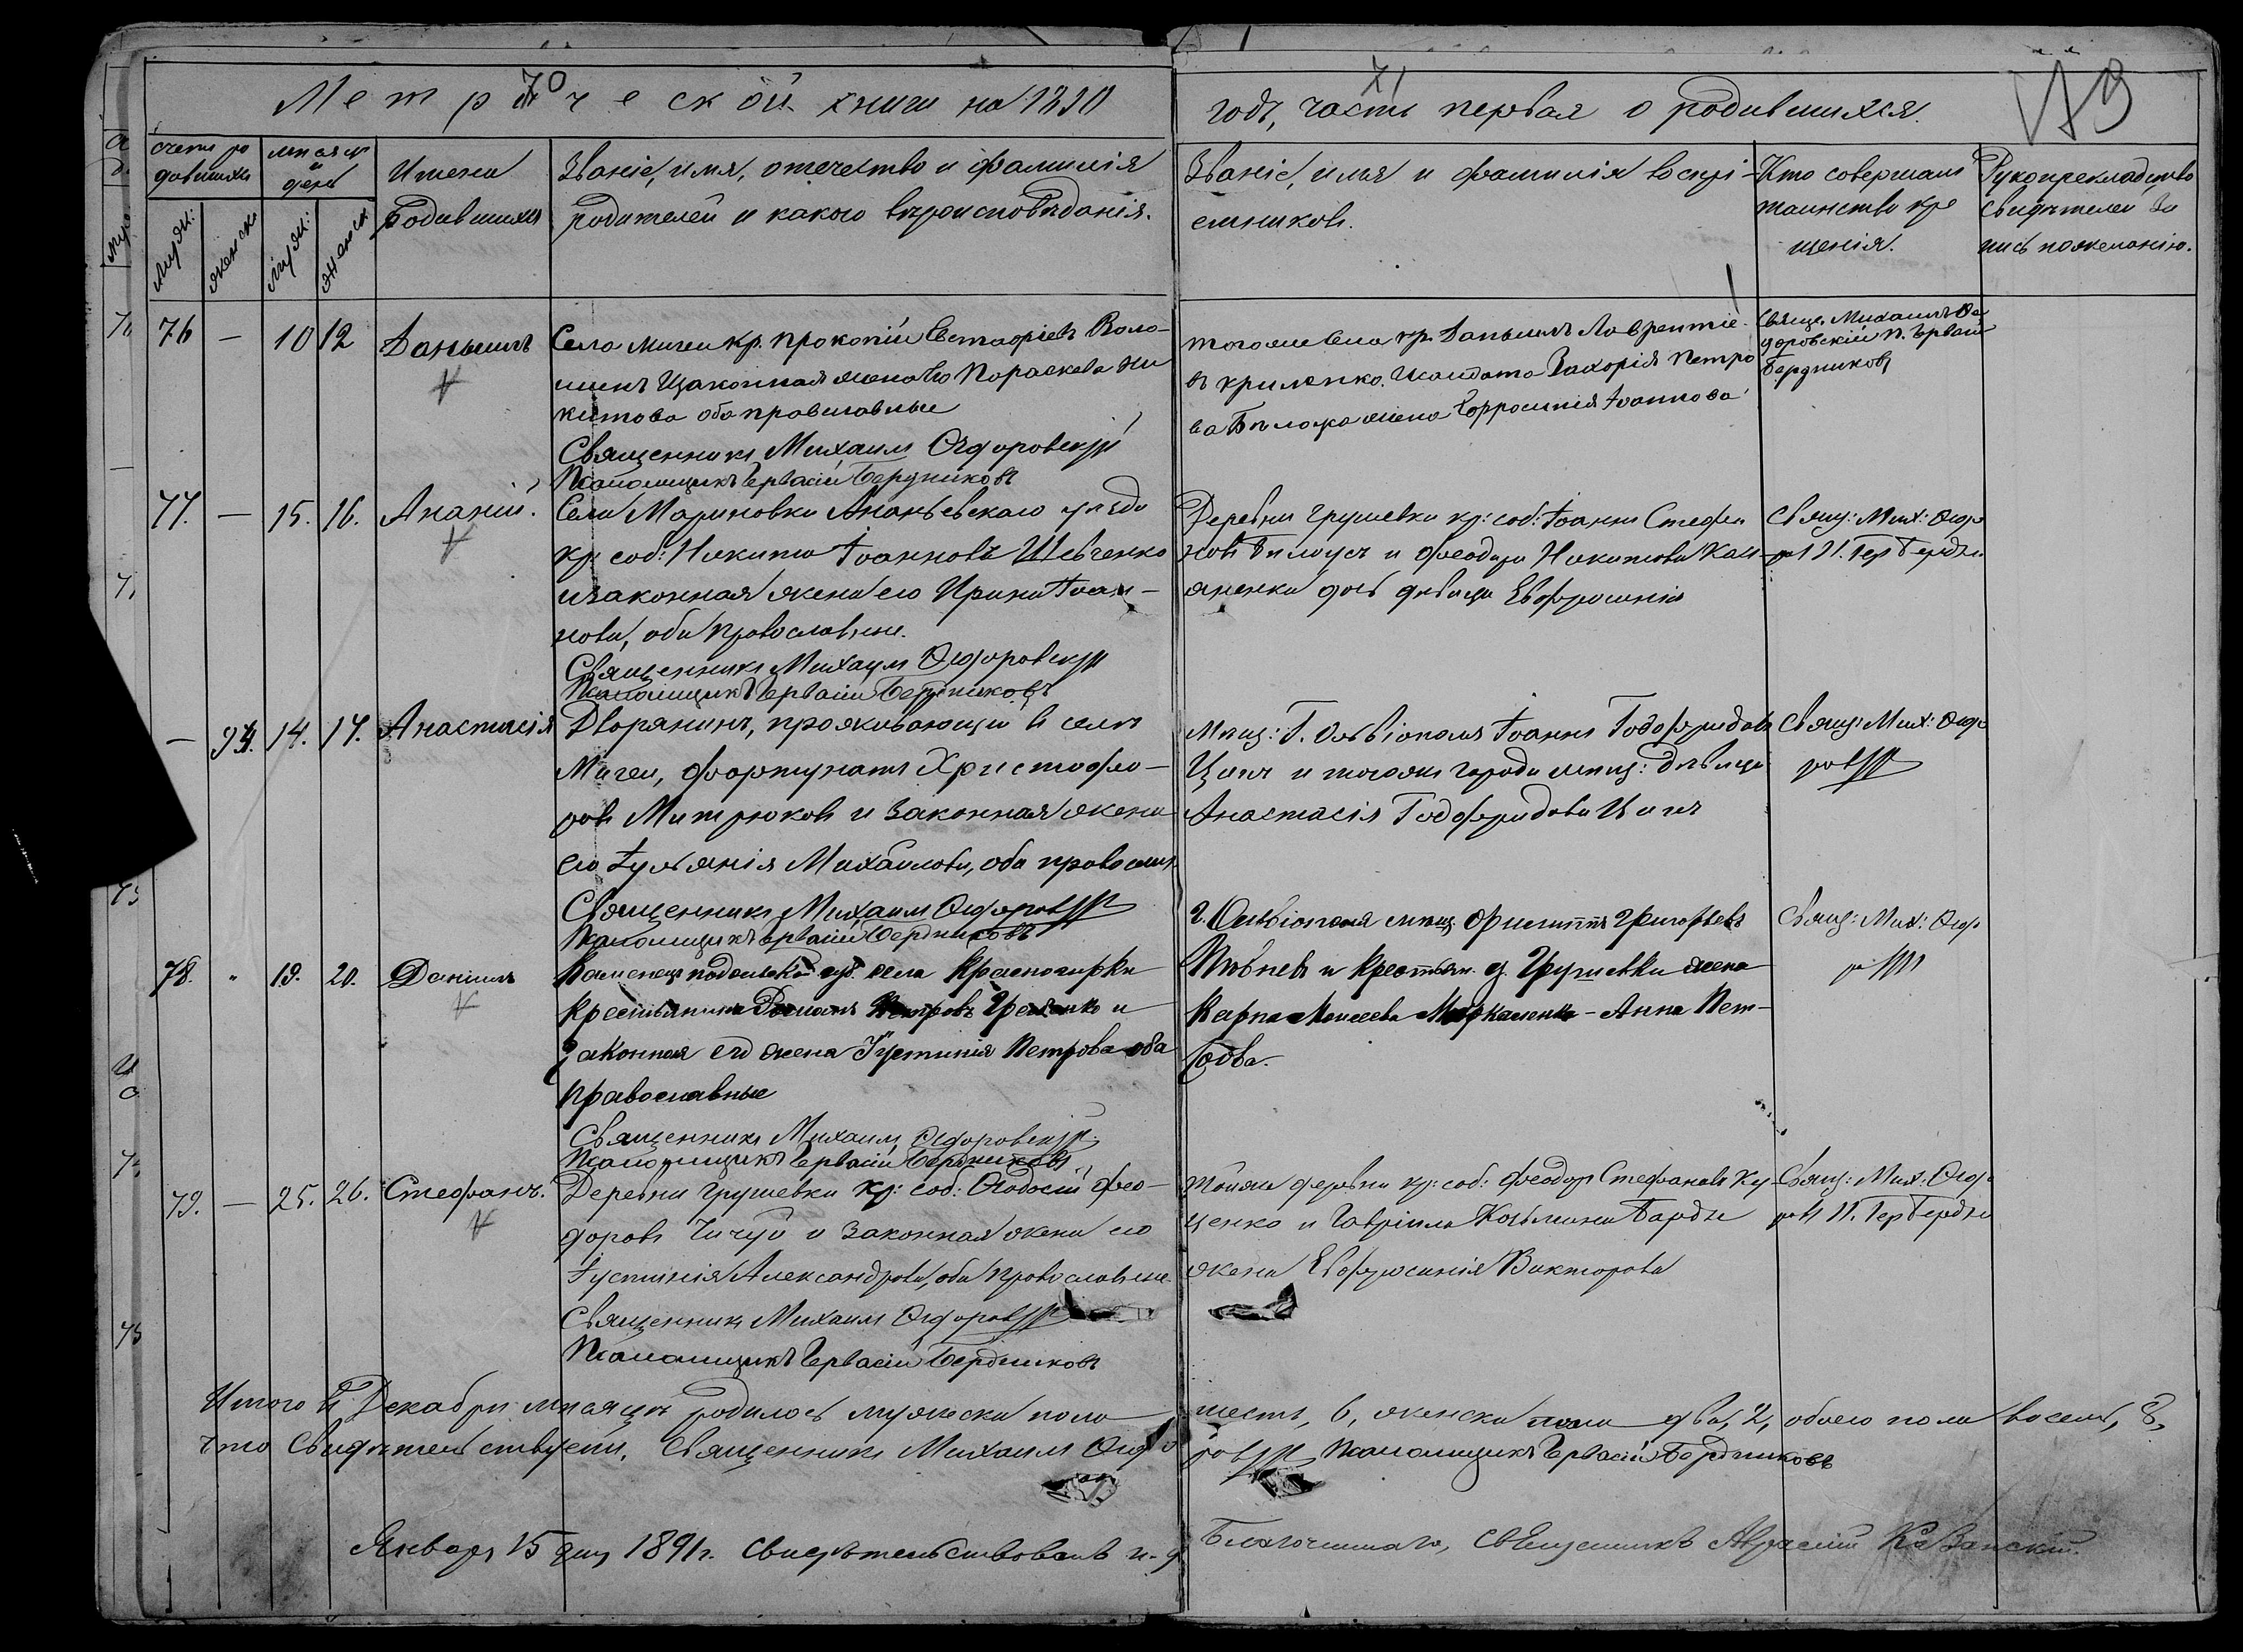 70
Метрической книги на 1890
71
годъ, часть первая о родившихся.
счетъ ро
дившихся
мѣсяцъ
и
день
Имена
родившихся
Званіе, имя, отчество и фамилія
родителей и какого вѣроисповѣданія.
Званіе, имя и фамилія воспрі-
емниковъ.
Кто совершалъ
таинство кре
щенія.
Рукоприкладство
свидѣтелей за
пись по желанію.
муж: женск муж: женск
76 — 10 12 Даніилъ
Села Мигеи кр. Прокопій Евстафіевъ Воло-
шинъ и законная жена его Параскева Ни
китова оба православные
Священникъ Михаилъ Ѳедоровскій
Псаломщикъ Гервасій Бердниковъ
тогоже села кр. Даніилъ Лаврентіе-
въ Криленко. И солдата Захарія Петро
ва жена Евфросинія Іоаннова
Свящ. Михаилъ Ѳе
доровскій П. Герваcій
Бердниковъ
77. — 15. 16. Ананій.
Села Мариновки Ананьевскаго уѣзда
кр: соб: Никита Іоанновъ Шевченко
и законная жена его Ирина Іоан-
нова, оба православные.
Священникъ Михаилъ Ѳедоровскій
Псаломщикъ Гервасій Бердниковъ
Деревни Грушевки кр: соб: Іоаннъ Стефа
новъ Билоусъ и Ѳеодора Никитова
дочь дѣвица Евфросинія
Свящ: Мих: Ѳедо
ров П. Гер Бердн
— 94. 14. 17. Анастасія
Дворянинъ, проживающій въ селѣ
Мигеи, Фортунатъ Христофо-
ровъ Митрюковъ и законная жена
его Іуліанія Михайлова, оба православ.
Священникъ Михаилъ Ѳедоров
Псаломщикъ Гервасій Бердниковъ
Мѣщ: Г. Ольвіополя Іоаннъ Годофридовъ
Цигъ и тогожъ города мѣщ: дѣвица
Анастасія Годофридова Цигъ
Свящ: Мих: Ѳедо
ров
78. " 19. 20. Даніилъ
Каменецъ подольской губ. села Красногирки
крестьянинъ Романъ Петровъ и
законная его жена Іустинія Петрова оба
православные
Священникъ Михаилъ Ѳедоровскій
Псаломщикъ Гервасій Бердниковъ
г. Ольвіополя мѣщ. Филиппъ Григорьевъ
и крестьян. д. Грушевки жена
Карпа Моисеева - Анна Пет-
рова.
Свящ: Мих: Ѳедо
ро
79. — 25. 26. Стефанъ.
Деревни Грушевки кр: соб: Ѳеодосій Ѳео-
доровъ Чичуй и законная жена его
Іустинія Александрова, оба православные.
Священникъ Михаилъ Ѳедоров
Псаломщикъ Гервасій Бердниковъ
Тойже деревни кр: соб: Ѳеодоръ Стефановъ Ку-
ценко и Гавріила Козьмина Барды
жена Евфросинія Викторова
Свящ: Мих: Ѳедо
ров П. Гер Бердн
Итого въ Декабрѣ мѣсяцѣ родилось мужеска пола шесть, 6, женска пола два, 2, обоего пола восемь, 8,
что свидѣтельствуетъ. Священникъ Михаилъ Ѳедоров Псаломщикъ Гервасій Бердниковъ
Январь 15 дня 1891 г. Свидѣтельствовалъ и. д. Благочиннаго, Священникъ Казанскій.